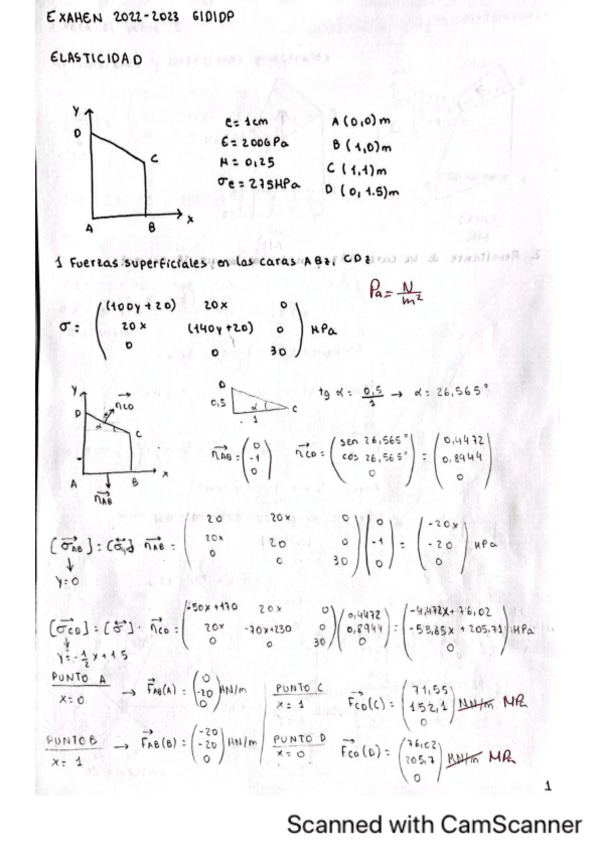 EXAMEN 2022-2023 GIDIDP
ELASTICIDAD
y D C A B x
e = 1cm A (0,0)m
E = 200GPa B (1,0)m
M = 0,25 C (1,1)m
σe = 275MPa D (0, 1.5)m
1 Fuerzas superficiales en las caras ABz, CDz
Pa = N/m²
σ: ( (100y+20) 20x 0
20x (140y+20) 0
0 0 30 ) MPa
y D nCD α C A B x nAB
D 0,5 α C 1
tg α = 0,5/1 → α = 26,565°
nAB = ( 0 -1 0 ) nCD = ( sen 26,565° cos 26,565° 0 ) = ( 0,4472 0,8944 0 )
[σAB] = [σ] nAB = ( 20 20x 0
20x 20 0
0 0 30 ) ( 0 -1 0 ) = ( -20x -20 0 ) MPa
y=0
[σCD] = [σ] · nCD = ( -50x+170 20x 0
20x -70x+230 0
0 0 30 ) ( 0,4472 0,8944 0 ) = ( -4,472x+76,02 -58,85x+205,71 0 ) MPa
y = -1/2 x + 1.5
PUNTO A x=0 → FAB(A) = ( 0 -20 0 ) MN/m
PUNTO C x=1 FCD(C) = ( 71,55 152,1 0 ) MN/m MPa
PUNTO B x=1 → FAB(B) = ( -20 -20 0 ) MN/m
PUNTO D x=0 FCD(D) = ( 76,02 205,7 0 ) MN/m MPa
1
Scanned with CamScanner